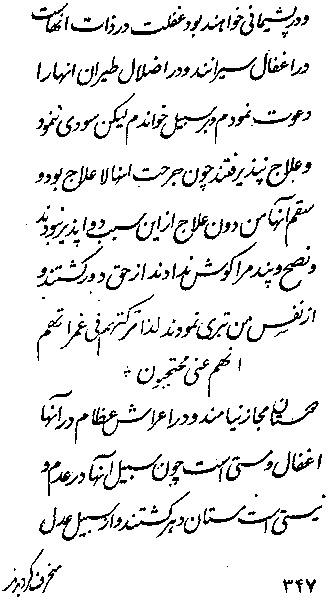 و در پشیمانی خواهند بود غفلت در ذات انهاست
در اغفال سیرانند و در اضلال طیران انها را
دعوت نمودم و بر سبیل خواندم لیکن سودی ننمود
و علاج نپذیرفتند چون جرحت انها لا علاج بود و
سقم آنها من دون علاج از این سبب دوا پذیر نبودند
و نصح و پند مرا گوش ندادند از حق دور گشتند و
از نفس من تبری نمودند لذا ترکتهم فی غمراتهم
انهم عنی محتجبون *
مجاز نیامند و در اعراش عظام در آنها
اغفال و سستی است چون سبیل آنها در عدم و
نیستی است مستان دهر گشتند و از سبیل عدل
منحرف گردیدند
۳۴۷